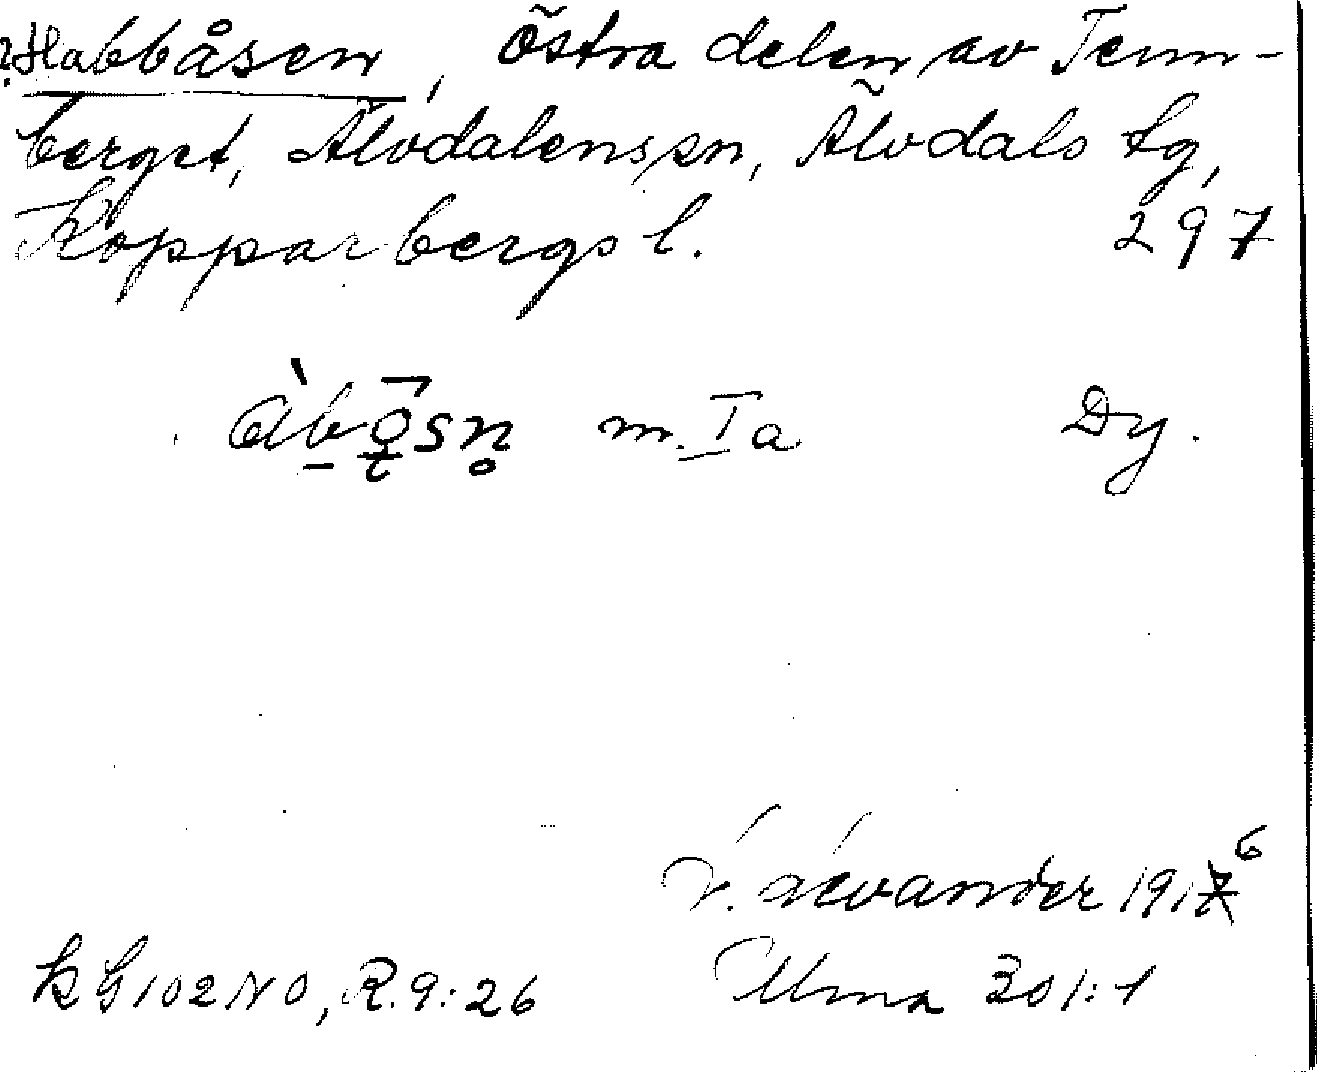 ?Habbåsen, Östra delen av Tenn-
berget, Älvdalens sn, Älvdals tg,
Kopparbergs l. 297
m. Ia Dy.
V. Levander 1916
KG 102 NO, R. 9:26 Ulma 301:1